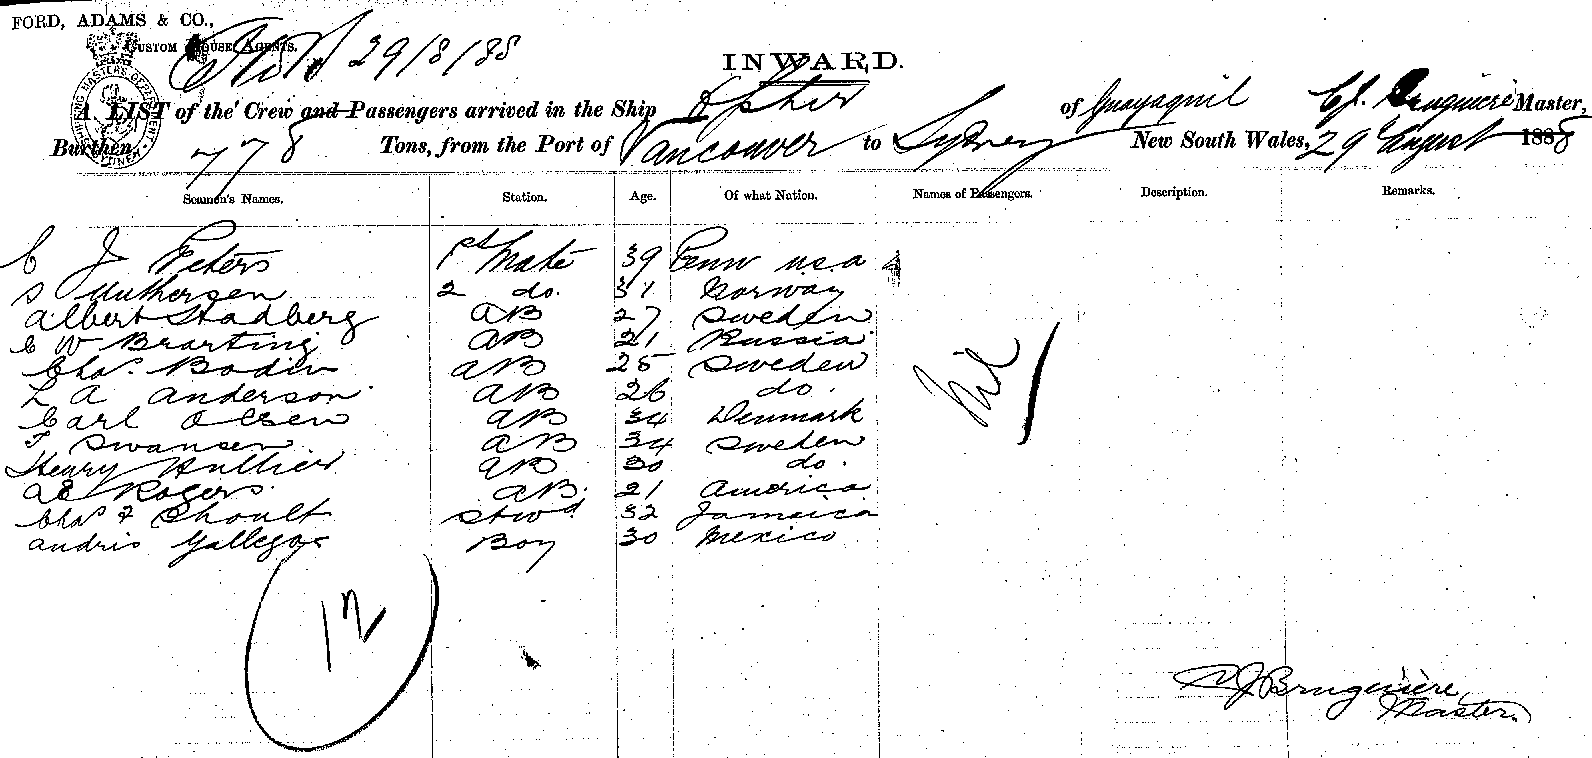 FORD, ADAMS & CO.,
CUSTOM HOUSE AGENTS.
29/8/88
INWARD.
A LIST of the Crew and Passengers arrived in the Ship Ophir of Guayaquil C J. Bruguiere Master,
Burthen, 778 Tons, from the Port of Vancouver to Sydney New South Wales, 29 August 1888
Seamen's Names. Station. Age. Of what Nation. Names of Passengers. Description. Remarks.
C J Peters 1st Mate 39 Penn U.S.A
S 2 do. 31 Norway
Albert Stadberg AB 27 Sweden
C W Brarting AB 21 Russia
Chas. Bodin AB 25 Sweden
L A Anderson AB 26 do.
Carl Olsen AB 34 Denmark
F Swansen AB 34 Sweden
Henry AB 30 do.
AE Rogers AB. 21 America
Chas F Shoult Stwd 32 Jamaica
Andris Gallegos Boy 30 Mexico
Nil
12
C J Bruguiere,
Master.